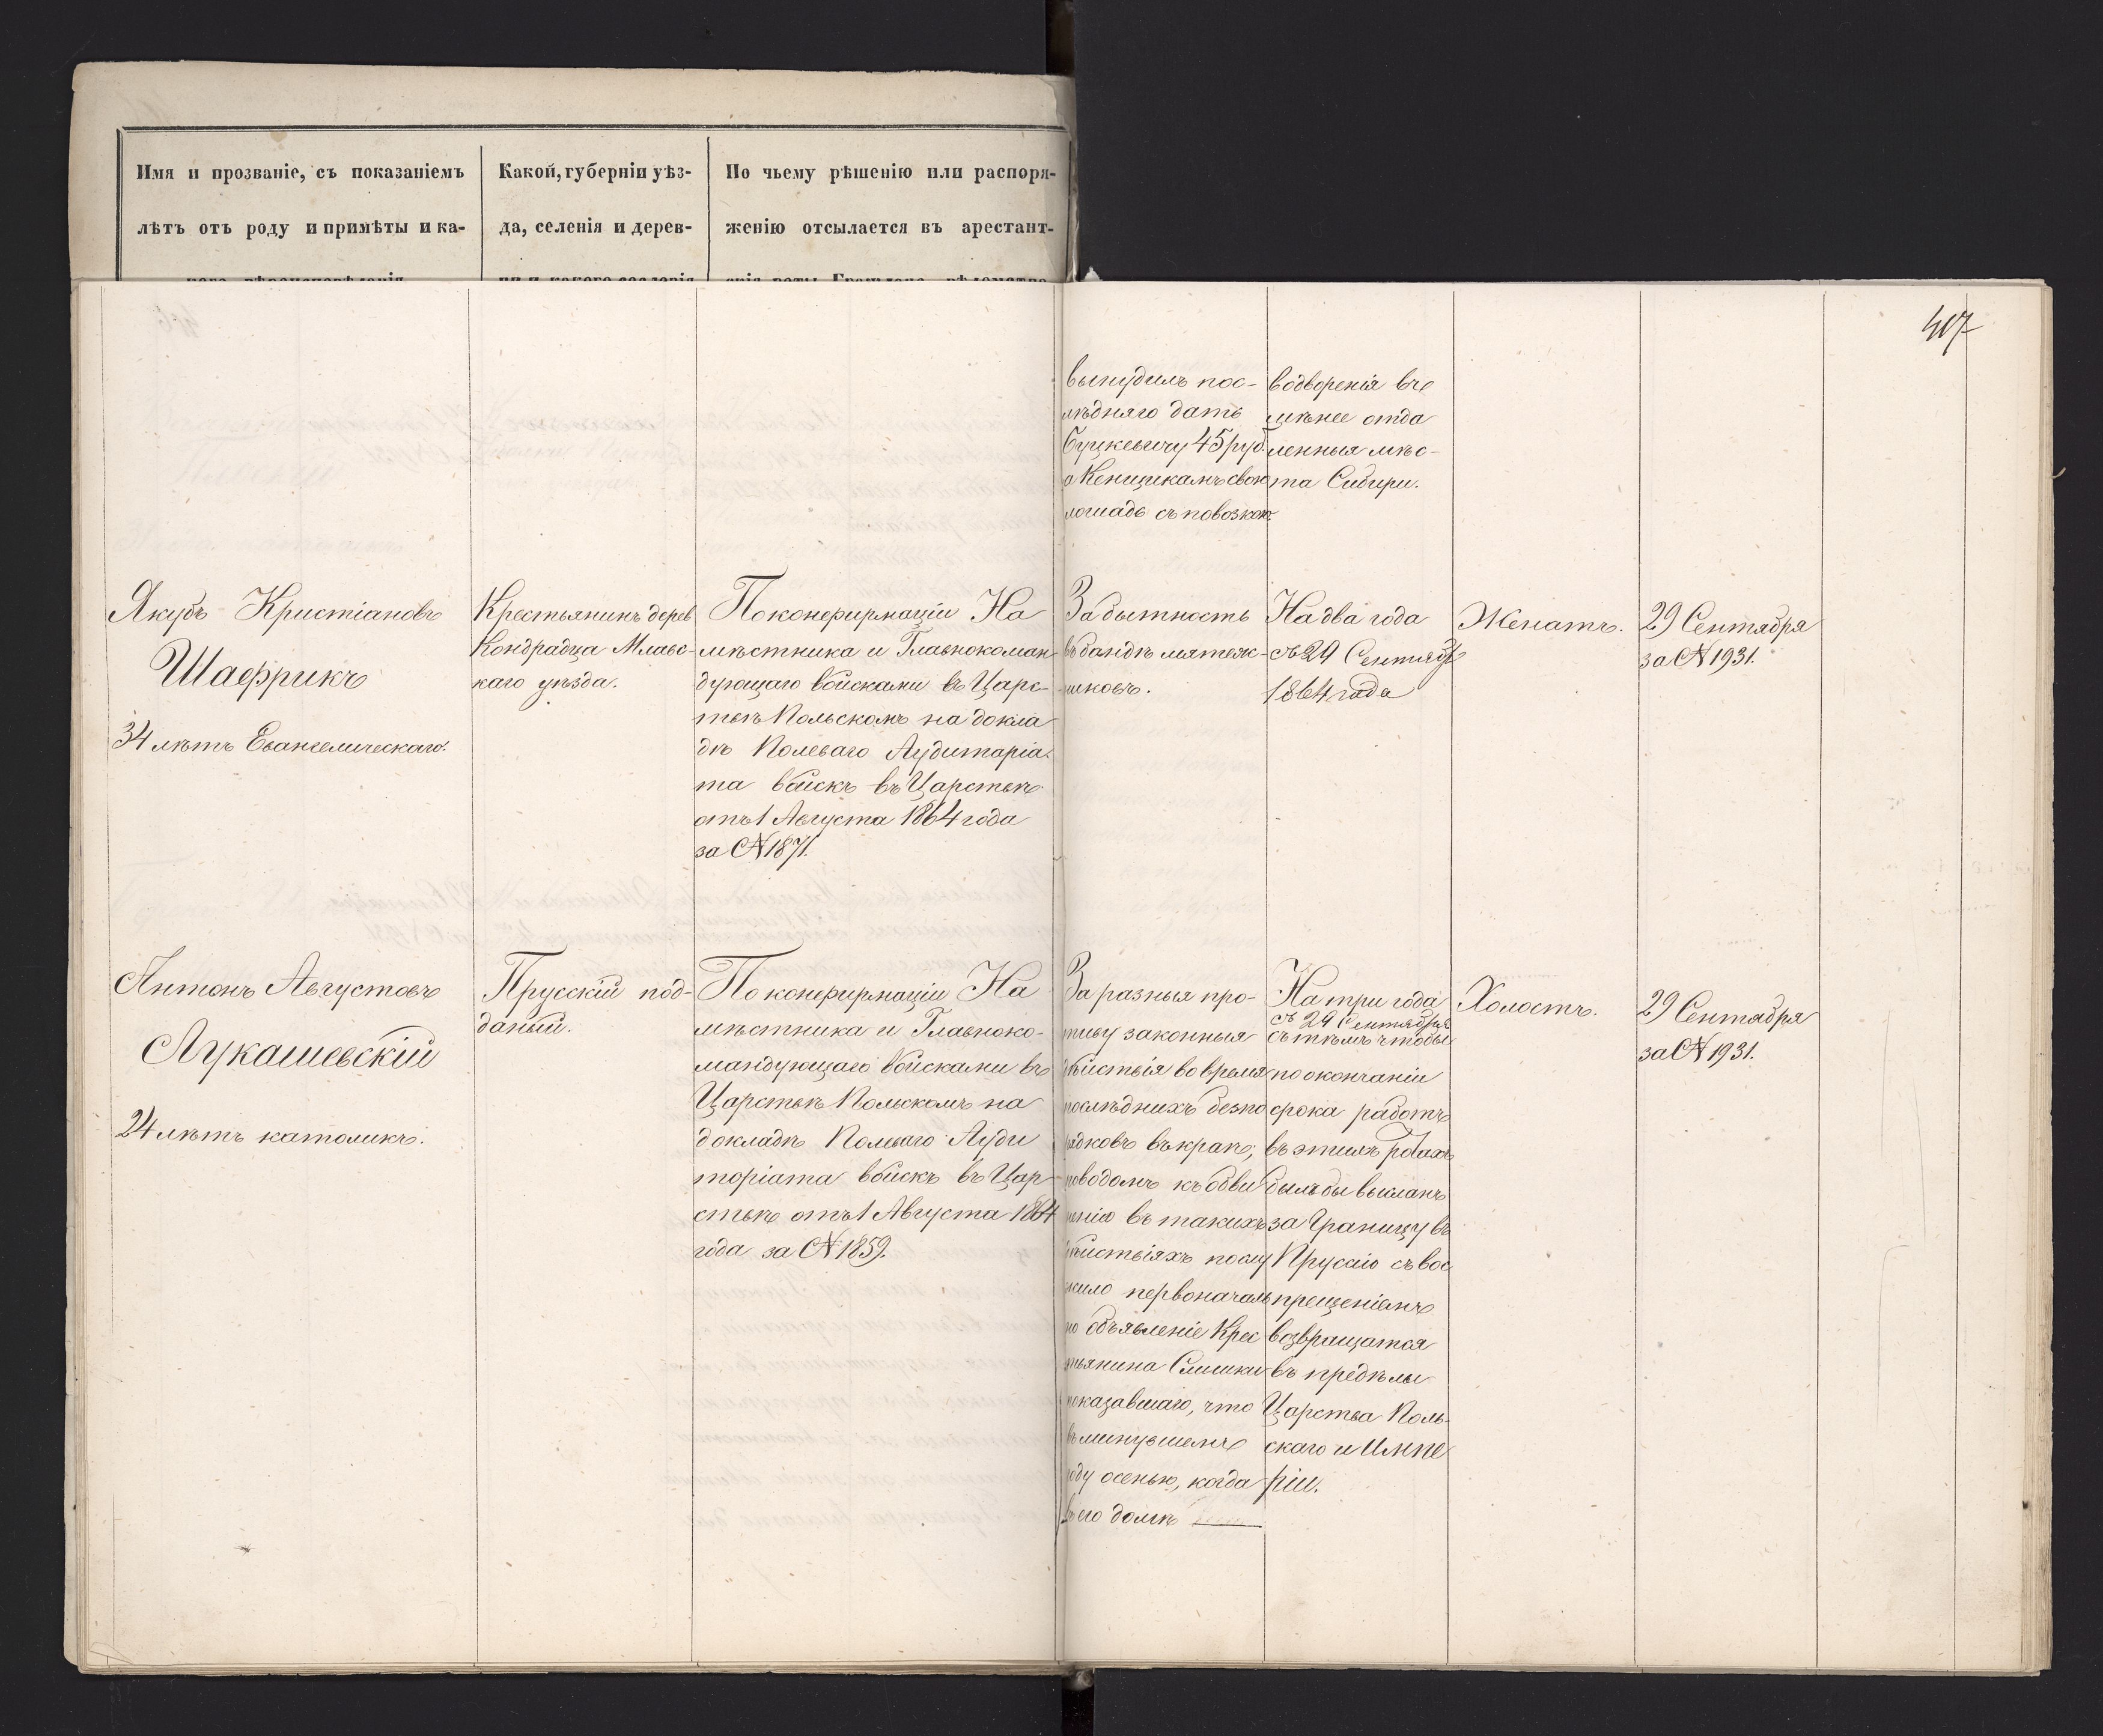 Имя и прозваніе, съ показаніемъ
лѣтъ отъ роду и примѣты и ка-
Какой, губерніи уѣз-
да, селенія и дерев-
По чьему рѣшенію или распоря-
женію отсылается въ арестант-
407
вынудилъ пос-
лѣдняго дать
Буцкевичу 45 руб.
а Кенщикамъ свою
лошадь съ повозкою.
водворенія въ
мѣнее отда
ленныя мѣс-
та Сибири.
Якубъ Кристіановъ
Шафрикъ
34 лѣтъ Евангелическаго.
Крестьянинъ дерев
Кондрадца Млавс-
каго уѣзда.
По конфирмаціи На
мѣстника и Главнокоман
дующаго войсками въ Царс-
твѣ Польскомъ на докла
дѣ Полеваго Аудиторіа
та войскъ въ Царствѣ
отъ 1 Августа 1864 года
за № 1871.
За бытность
въ бандѣ мятеж-
никовъ.
На два года
съ 29 Сентябр
1864 года
Женатъ.
29 Сентября
за № 1931.
Антонъ Августовъ
Лукашевскій
24 лѣтъ католикъ.
Прусскій под-
даный.
По конфирмаціи На
мѣстника и Главноко-
мандующаго войсками въ
Царствѣ Польскомъ на
докладѣ Полеваго Ауди
торіата войскъ въ Цар
ствѣ отъ 1 Августа 1864
года за № 1859.
За разныя про-
тиву законныя
дѣйствія во время
послѣднихъ безпо
рядковъ въ краѣ,
поводомъ къ обви
ненію въ такихъ
дѣйствіяхъ послу
жило первоначаль
но объявленіе Крес
тьянина Слишки
показавшаго, что
въ минувшемъ
году осенью, когда
въ его домѣ
На три года
съ 29 Сентября
съ тѣмъ чтобы
по окончаніи
срока работъ
въ этихъ ротахъ
былъ бы высланъ
за границу въ
Пруссію съ вос
прещеніемъ
возвращатся
въ предѣлы
Царства Поль-
скаго и Импе
ріи.
Холостъ.
29 Сентября
за № 1931.